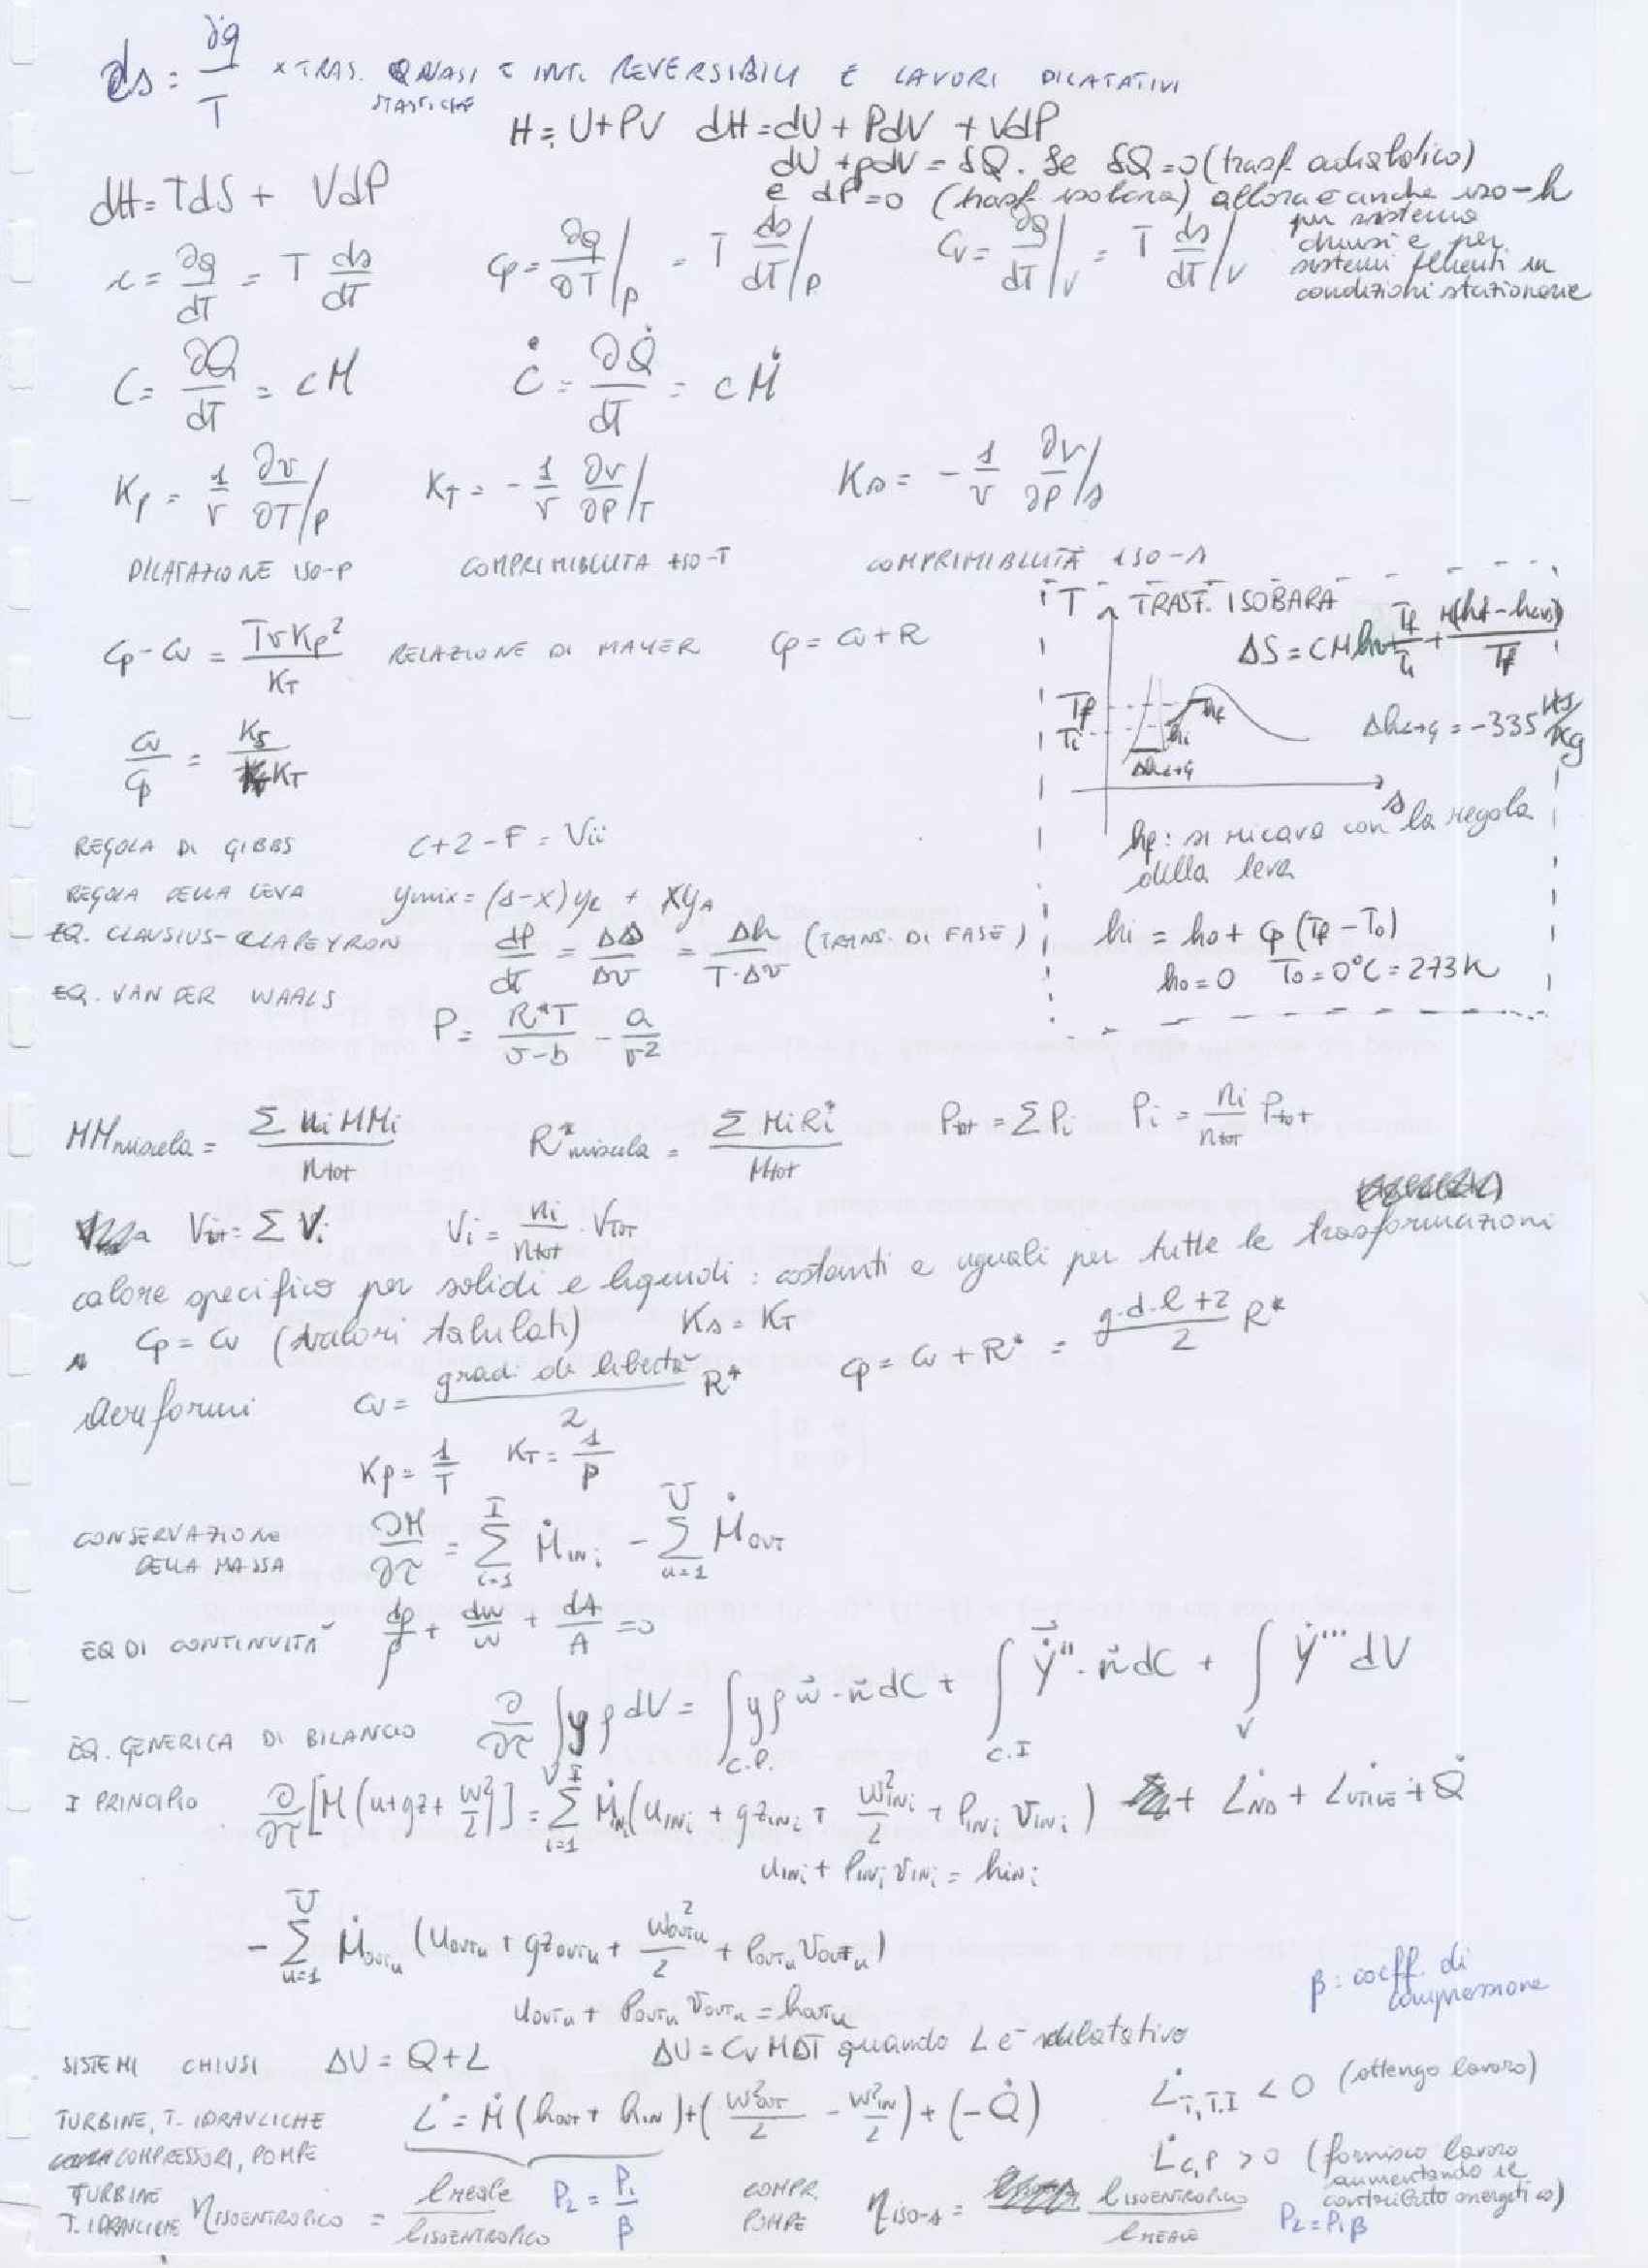 ds = ∂q/T × TRAS. QUASI STATICHE E INT. REVERSIBILI E LAVORI DILATATIVI
H = U+PV dH = dU + PdV + VdP
dU + pdV = δQ. Se δQ=0 (trasf. adiabatico)
dH = TdS + VdP
e dP=0 (trasf. isobara) allora è anche iso-h
per sistemi chiusi e per sistemi fluenti in condizioni stazionarie
c = ∂q/dT = T ds/dT cp = ∂q/∂T|p = T ds/dT|p cv = ∂q/dT|v = T ds/dT|v
C = ∂Q/dT = cM Ċ = ∂Q̇/dT = cṀ
Kp = 1/v ∂v/∂T|p KT = -1/v ∂v/∂P|T Ks = -1/v ∂v/∂P|s
DILATAZIONE ISO-P COMPRIMIBILITÀ ISO-T COMPRIMIBILITÀ ISO-S
cp - cv = TvKp²/KT RELAZIONE DI MAYER cp = cv + R
cv/cp = Ks/KT
T TRASF. ISOBARA
ΔS = CM ln Tf/Ti + M(hf - hi)/Tf
Tf
Ti
hf
hi
Δh
s
= -335 kJ/kg
hf: si ricava con la regola
della leva
hi = h0 + cp (Tf - T0)
h0 = 0 T0 = 0°C = 273K
REGOLA DI GIBBS C+2-F = Vii
REGOLA DELLA LEVA ymix = (1-x)yL + xyA
EQ. CLAUSIUS-CLAPEYRON dP/dT = Δs/Δv = Δh/T·Δv (TRANS. DI FASE)
EQ. VAN DER WAALS P = R*T/v-b - a/v²
MMmiscela = Σ ni MMi/ntot R*miscela = Σ MiRi*/Mtot Ptot = ΣPi Pi = ni/ntot Ptot
Vtot = ΣVi Vi = ni/ntot · VTOT
calore specifico per solidi e liquidi: costanti e uguali per tutte le trasformazioni
cp = cv (valori tabulati) Ks = KT
Aeriformi cv = gradi di libertà/2 R* cp = cv + R* = g.d.l+2/2 R*
Kp = 1/T KT = 1/P
CONSERVAZIONE DELLA MASSA ∂M/∂τ = Σ(i=1, I) ṀINi - Σ(u=1, U) ṀOUT
EQ DI CONTINUITÀ dρ/ρ + dw/w + dA/A = 0
EQ. GENERICA DI BILANCIO ∂/∂τ ∫V yρ dV = ∫C.P. yρ w⃗·n⃗ dC + ∫C.I Ẏ⃗''·n⃗ dC + ∫V Ẏ''' dV
I PRINCIPIO ∂/∂τ [M(u+gz+w²/2)] = Σ(i=1, I) ṀINi (uINi + gzINi + w²INi/2 + PINi vINi) + L̇ND + L̇UTILE + Q̇
uINi + PINi vINi = hINi
- Σ(u=1, U) ṀOUTu (uOUTu + gzOUTu + wOUTu²/2 + POUTu vOUTu)
uOUTu + POUTu vOUTu = hOUTu
β: coeff. di compressione
SISTEMI CHIUSI ΔU = Q+L ΔU = CvMΔT quando L è dilatativo
TURBINE, T. IDRAULICHE
COMPRESSORI, POMPE
L̇ = Ṁ(hOUT + hIN) + (w²OUT/2 - w²IN/2) + (-Q̇)
L̇T,T.I < 0 (ottengo lavoro)
L̇C,P > 0 (fornisco lavoro aumentando il contributo energetico)
TURBINE
T. IDRAULICHE ηISOENTROPICO = lREALE/lISOENTROPICO P2 = P1/β
COMPR. POMPE ηISO-S = lISOENTROPICO/lREALE P2 = P1β